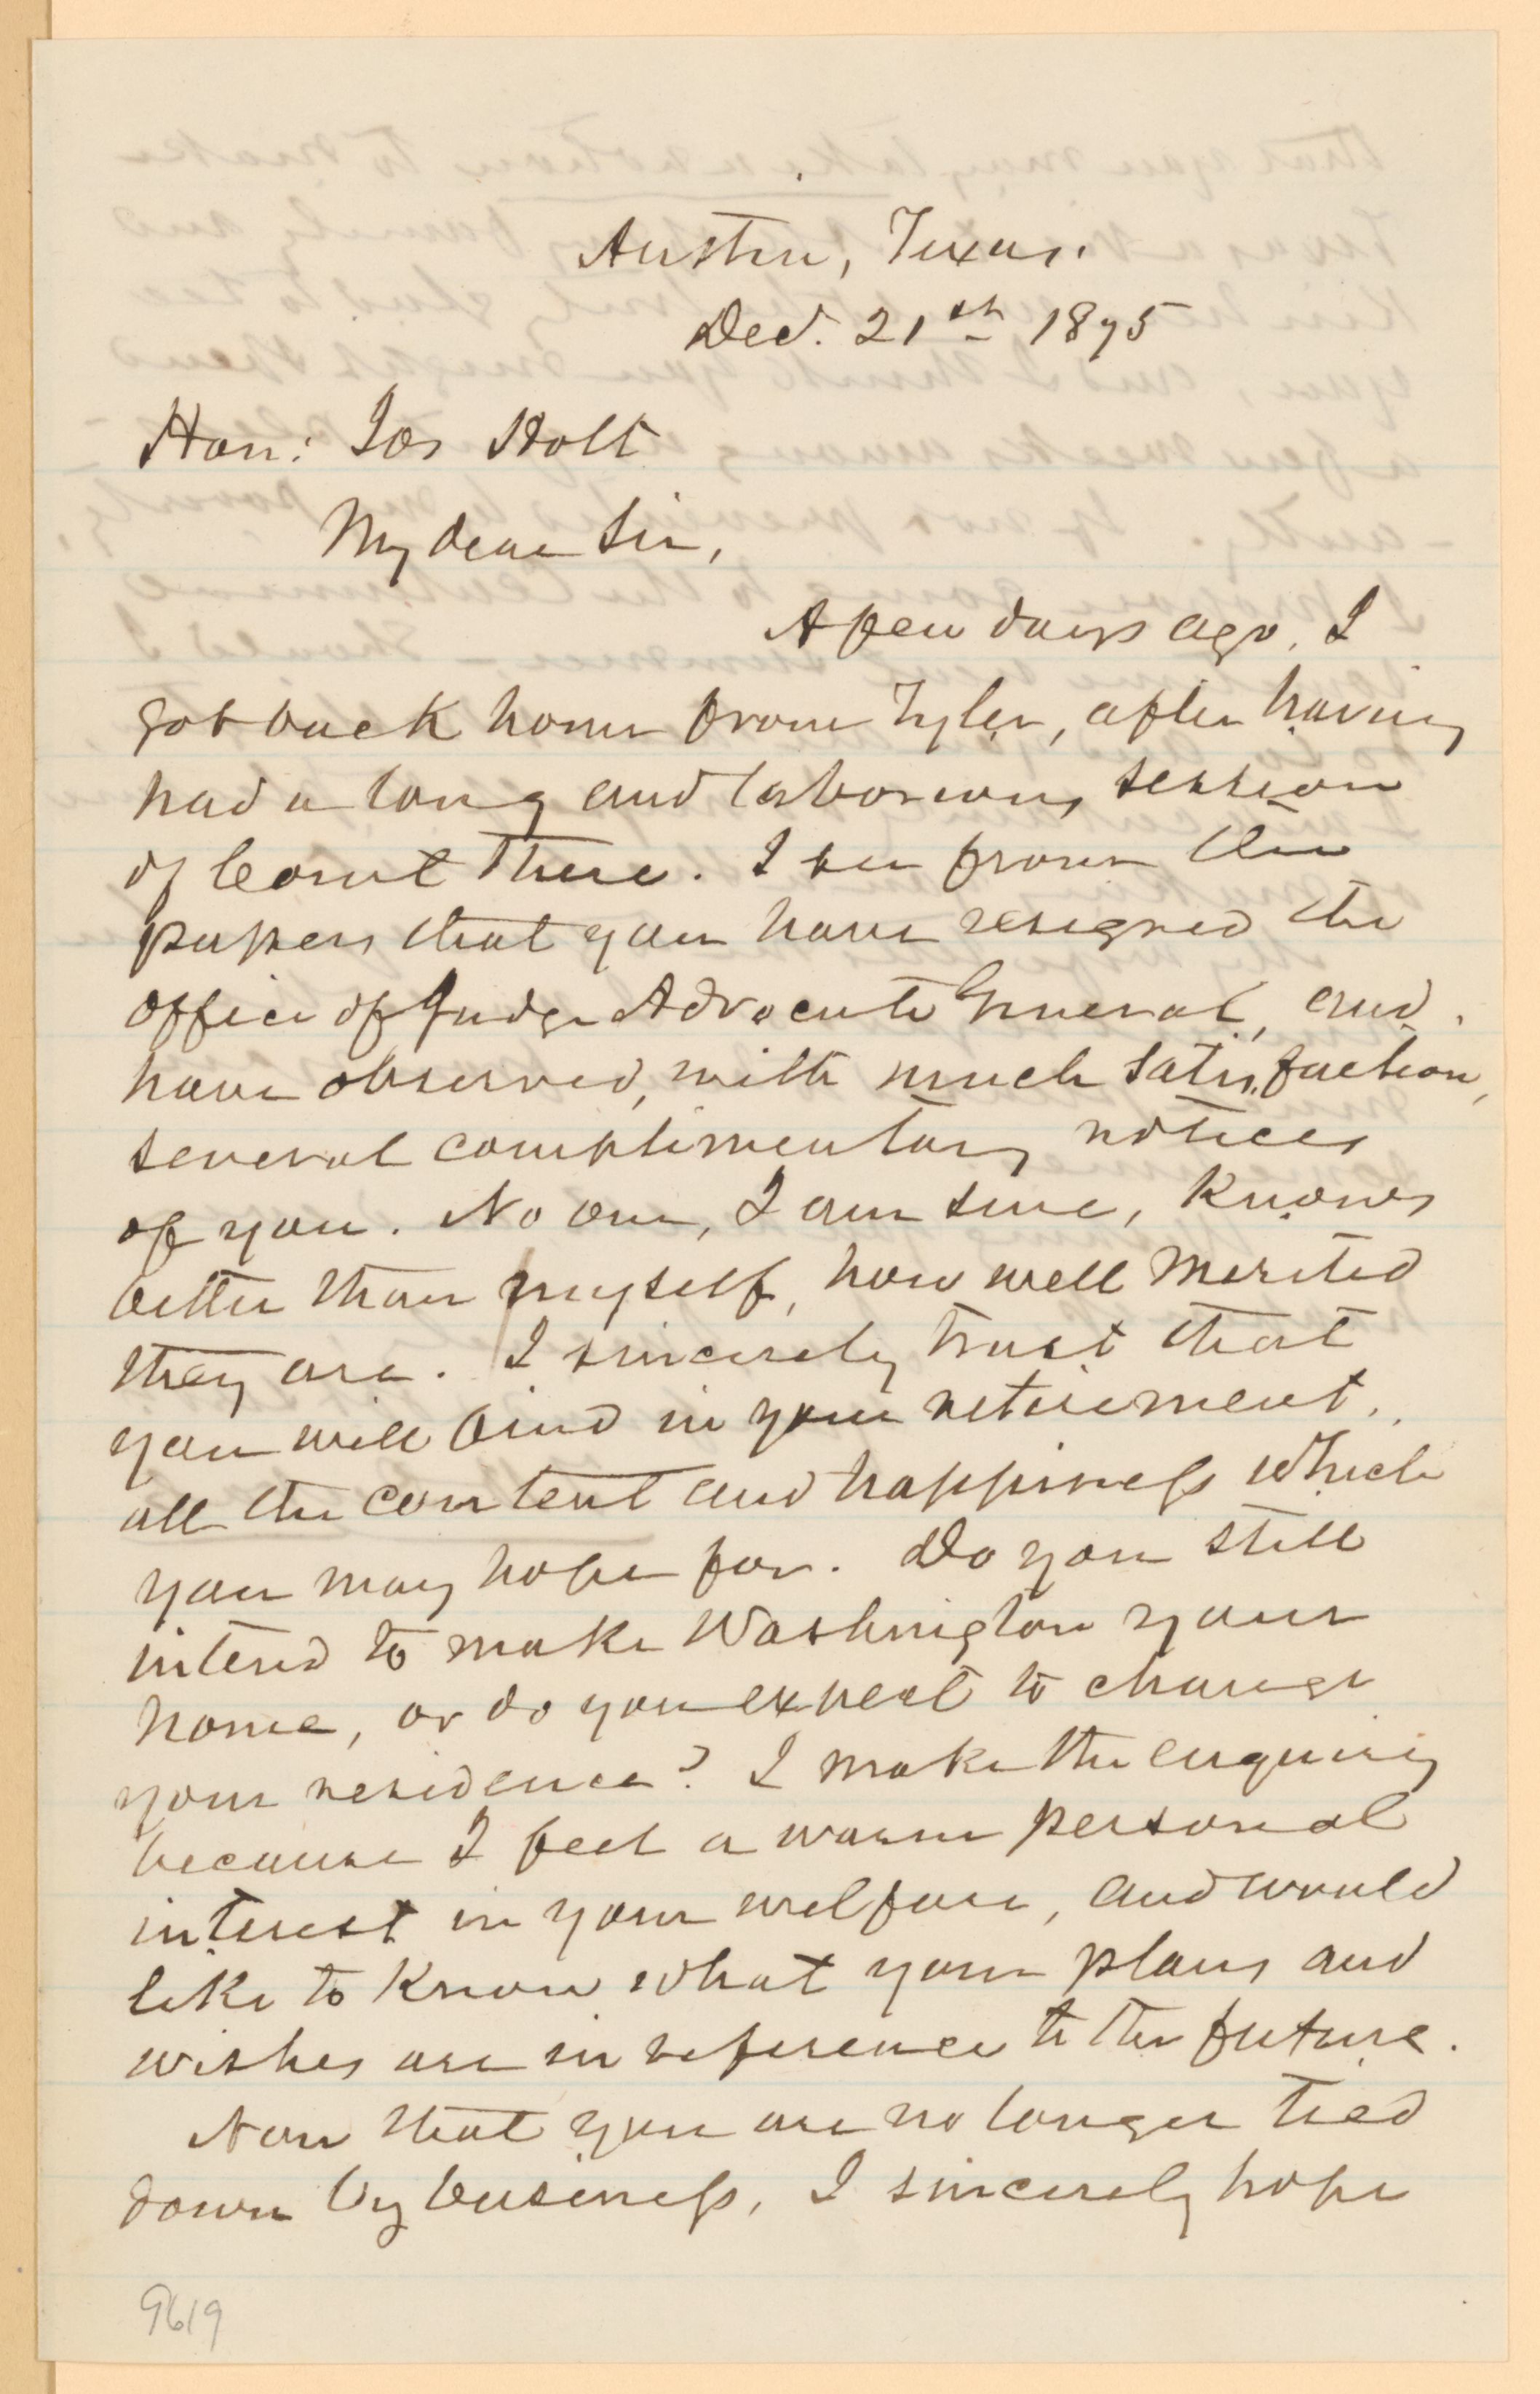 Austin, Texas.
Dec. 21th 1875
Hon: Jos Holt
My dear Sir,
A few days ago, I
got back home from Tyler, after having
had a long and laborious session
of Court there. I see from the
papers that you have resigned the
office of Judge Advocate General, and
have observed, with much satisfaction,
several complimentary notices
of you. No one, I am sure, knows
better than myself, how well merited
they are. I sincerely trust that
you will find in your retirement,
all the content and happiness which
you may hope for. Do you still
intend to make Washington your
home, or do you expect to change
your residence? I make the enquiry
because I feel a warm personal
interest in your welfare, and would
like to know what your plans and
wishes are in reference to the future.
Now that you are no longer tied
down by business, I sincerely hope
9619